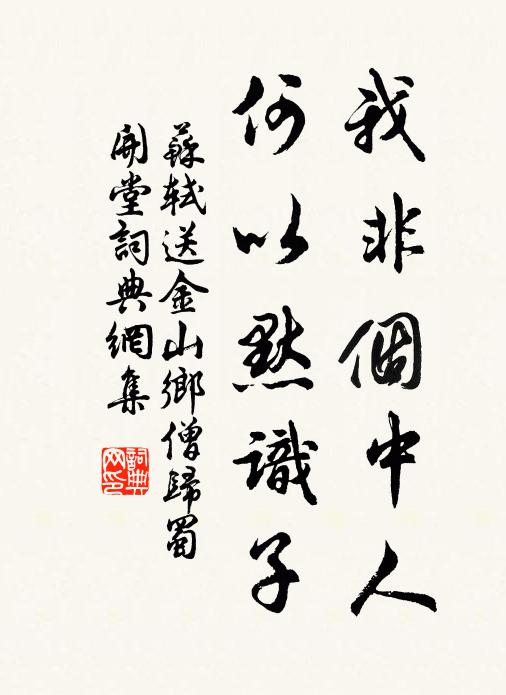 我非個中人
何以默識子
蘇軾送金山鄉僧歸蜀
開堂詞典網集
詞典網印